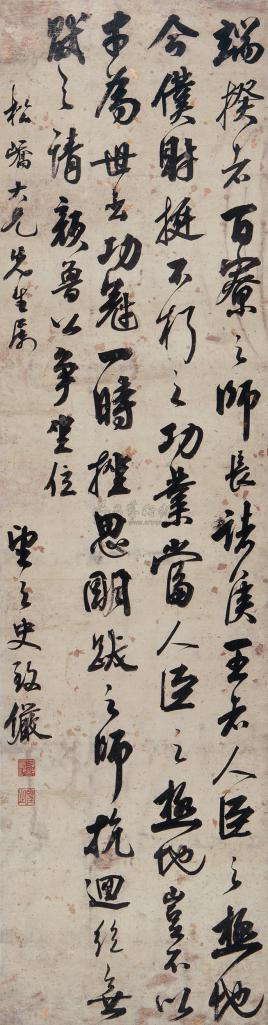 端揆者百寮之師長諸侯王者人臣之極地
今僕射挺不朽之功業當人臣之極地豈不以
才為世出功冠一時挫思明跋之師抗迴紇無
猒之請顏魯公爭坐位
松嶠大兄先生屬
望之史致儼